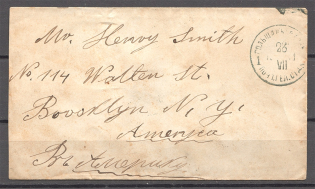 Mr. Henry Smith
No. 114 Walton St.
Broocklyn N. Y.
America
Въ Америку
23
1
VII